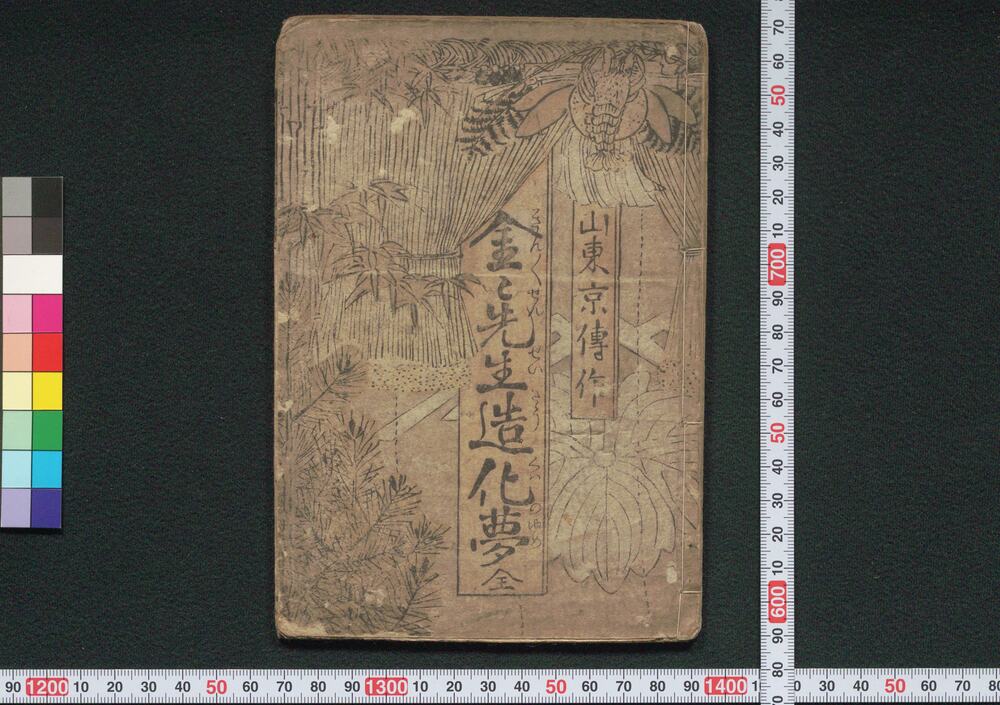 山東京傳作
金々先生造化夢 全
きん〱せんせいざうくわのゆめ
70
60
50
40
30
20
10
700
90
80
70
60
50
40
30
20
10
600
90
80
70
90 1200 10 20 30 40 50 60 70 80 90 1300 10 20 30 40 50 60 70 80 90 1400 1 0 30 40 50 60 70 80